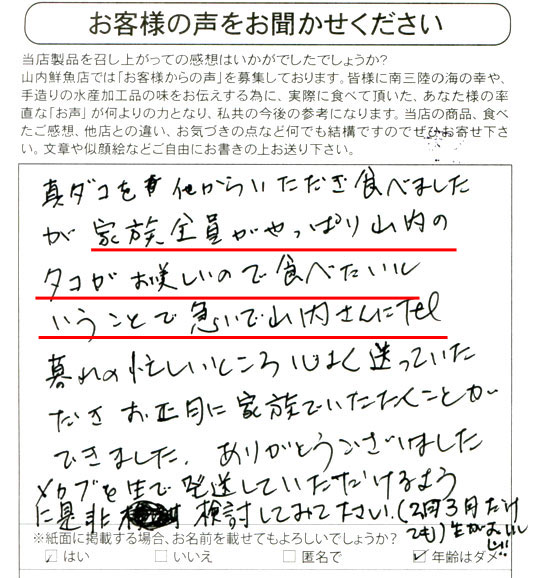 お客様の声をお聞かせください
当店製品を召し上がっての感想はいかがでしたでしょうか?
山内鮮魚店では「お客様からの声」を募集しております。皆様に南三陸の海の幸や、
手造りの水産加工品の味をお伝えする為に、実際に食べて頂いた、あなた様の率
直な「お声」が何よりの力となり、私共の今後の参考になります。当店の商品、食べ
たご感想、他店との違い、お気づきの点など何でも結構ですのでぜひお寄せ下さ
い。文章や似顔絵などご自由にお書きの上お送り下さい。
真ダコを 他からいただき食べました
が 家族全員がやっぱり山内の
タコがお美しいので食べたいと
いうことで急いで山内さんにTel
暮れの忙しいところ 心よく送っていた
だき お正月に家族でいただくことが
できました。ありがとうございました
メカブを生で発送していただけるよう
に是非 検討してみて下さい。(2月3月だけ
でも)生がおいしい!!
※紙面に掲載する場合、お名前を載せてもよろしいでしょうか?
はい いいえ 匿名で 年齢はダメ